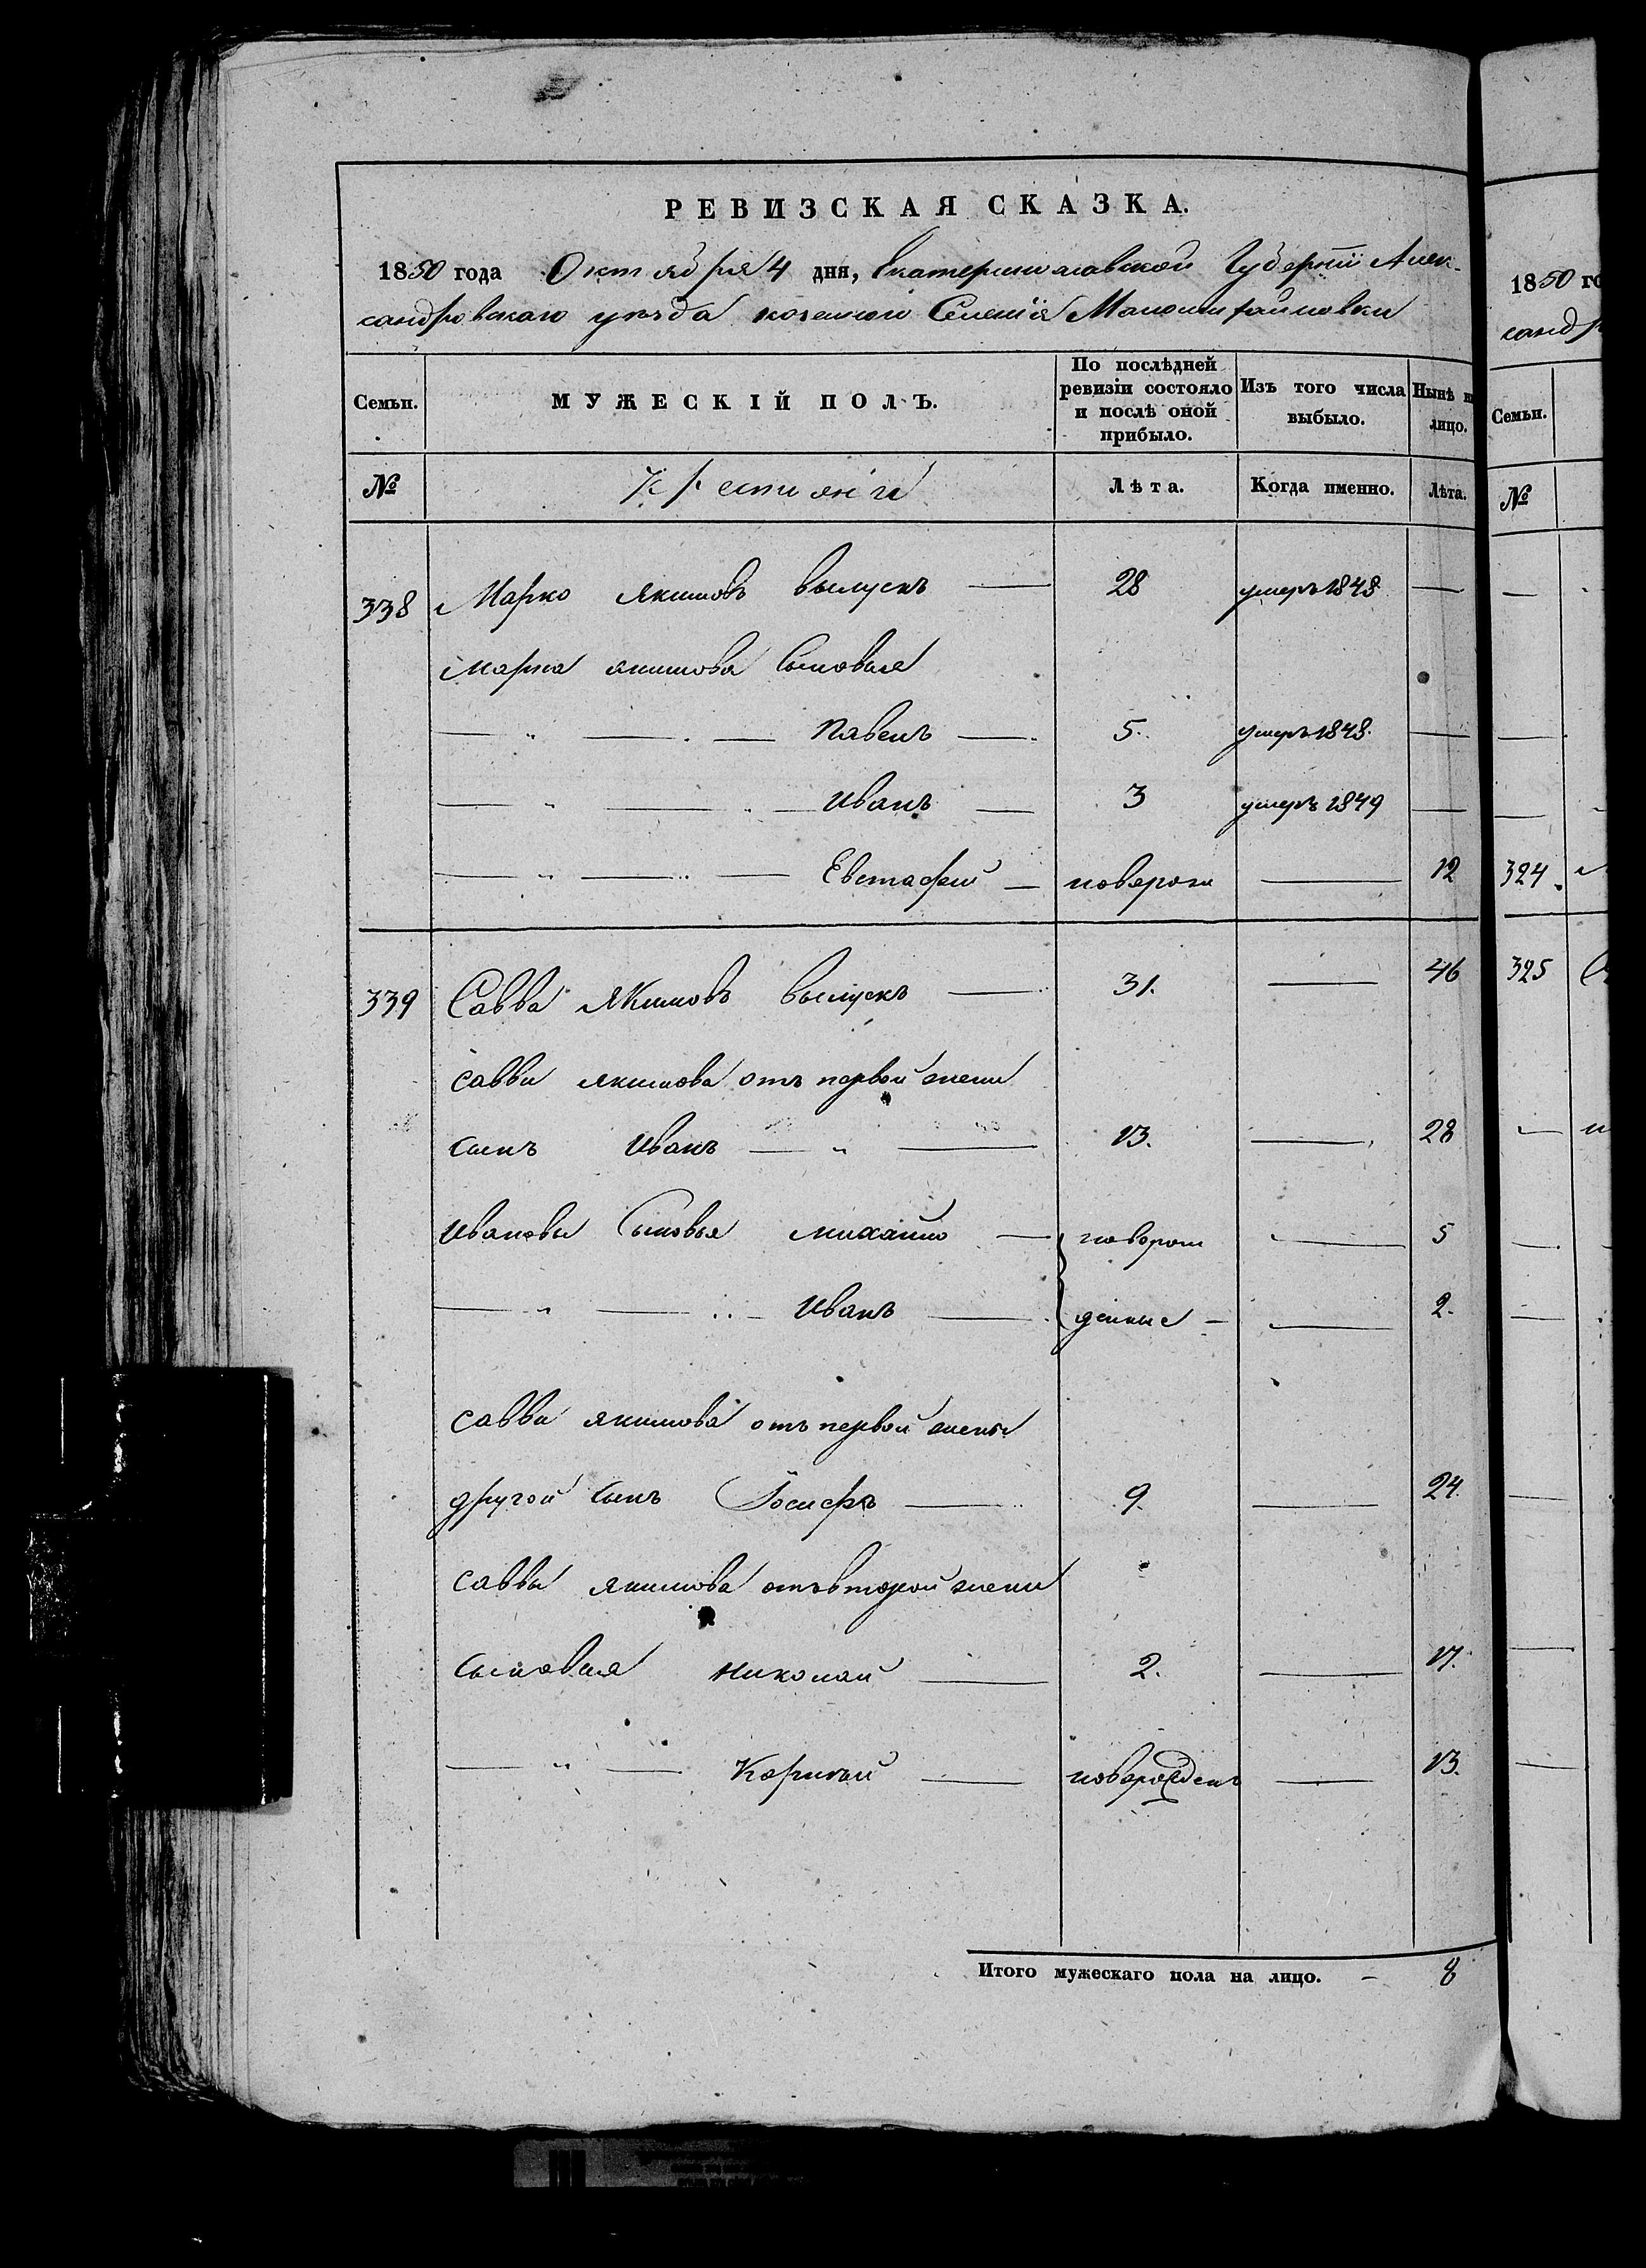 РЕВИЗСКАЯ СКАЗКА.
1850 года Октября 4 дня, Екатеринославской Губерніи Алек-
сандровскаго уѣзда казенного Селенія Маломихайловки
Семьи. МУЖЕСКІЙ ПОЛЪ. По послѣдней ревизіи состояло и послѣ оной прибыло. Изъ того числа выбыло. Нынѣ на лицо.
№ Крестьяне Лѣта. Когда именно. Лѣта.
338 Марко Якимовъ 28 умеръ 1848
Марка Якимова Сыновья
Павелъ 5. умеръ 1848.
Иванъ 3 умеръ 1849
Евстафий новорож 12
339 Савва Якимовъ 31. 46
Саввы Якимова отъ первой жены
сынъ Иванъ 13. 28
Ивановы Сыновья Михайло новорож 5
Иванъ денные 2.
Саввы Якимова отъ первой жены
другой сынъ Іосифъ 9. 24.
Саввы Якимова отъ второй жены
Сыновья Николай 2. 17.
Корнѣй новорожденъ 13.
Итого мужескаго пола на лицо. 8
1850 го
санд
Семьи.
№
324
325